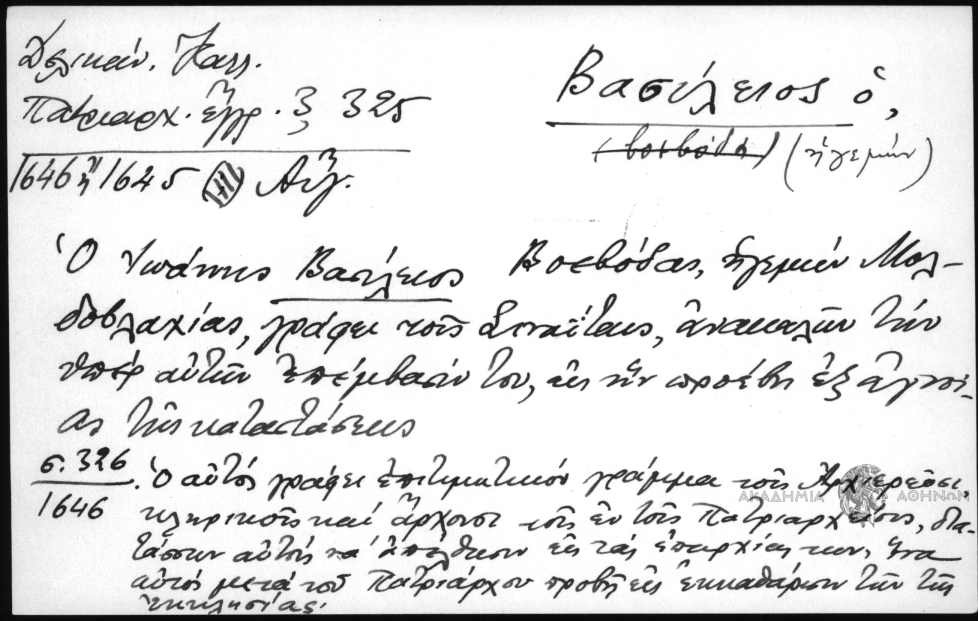 Δελικάν. Καλλ.
Πατριαρχ. ἔγγρ. 3, 325
1646 ἢ 1645 (III) Αὔγ.
Βασίλειος ὁ,
(βοεβόδα) (ἡγεμών)
Ὁ Ἰωάννης Βασίλειος Βοεβόδας, ἡγεμών Μολ-
δοβλαχίας, γράφει τοῖς Σιναΐταις, ἀνακαλῶν τήν
ὑπέρ αὐτῶν ἐπέμβασίν του, εἰς ἥν προέβη ἐξ ἀγνοί-
ας τῆς καταστάσεως
σ. 326
1646
Ὁ αὐτός γράφει ἐπιτιματικόν γράμμα τοῖς Ἀρχιερεῦσι,
κληρικοῖς καί ἄρχουσι τοῖς ἐν τοῖς Πατριαρχείοις, δια-
τάσσων αὐτούς νά ἀπέλθωσιν εἰς τάς ἐπαρχίας των, ἵνα
αὐτός μετά τοῦ Πατριάρχου προβῇ εἰς ἐκκαθάρισιν τῶν τῆς
ἐκκλησίας.
ΑΚΑΔΗΜΙΑ ΑΘΗΝΩΝ